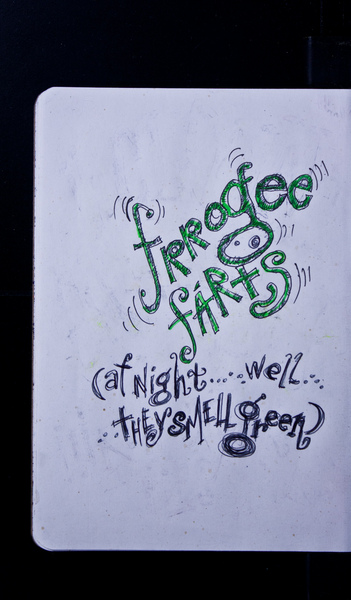 frrogee
fARTS
(at Night..... well...
...THEY SMELL green)